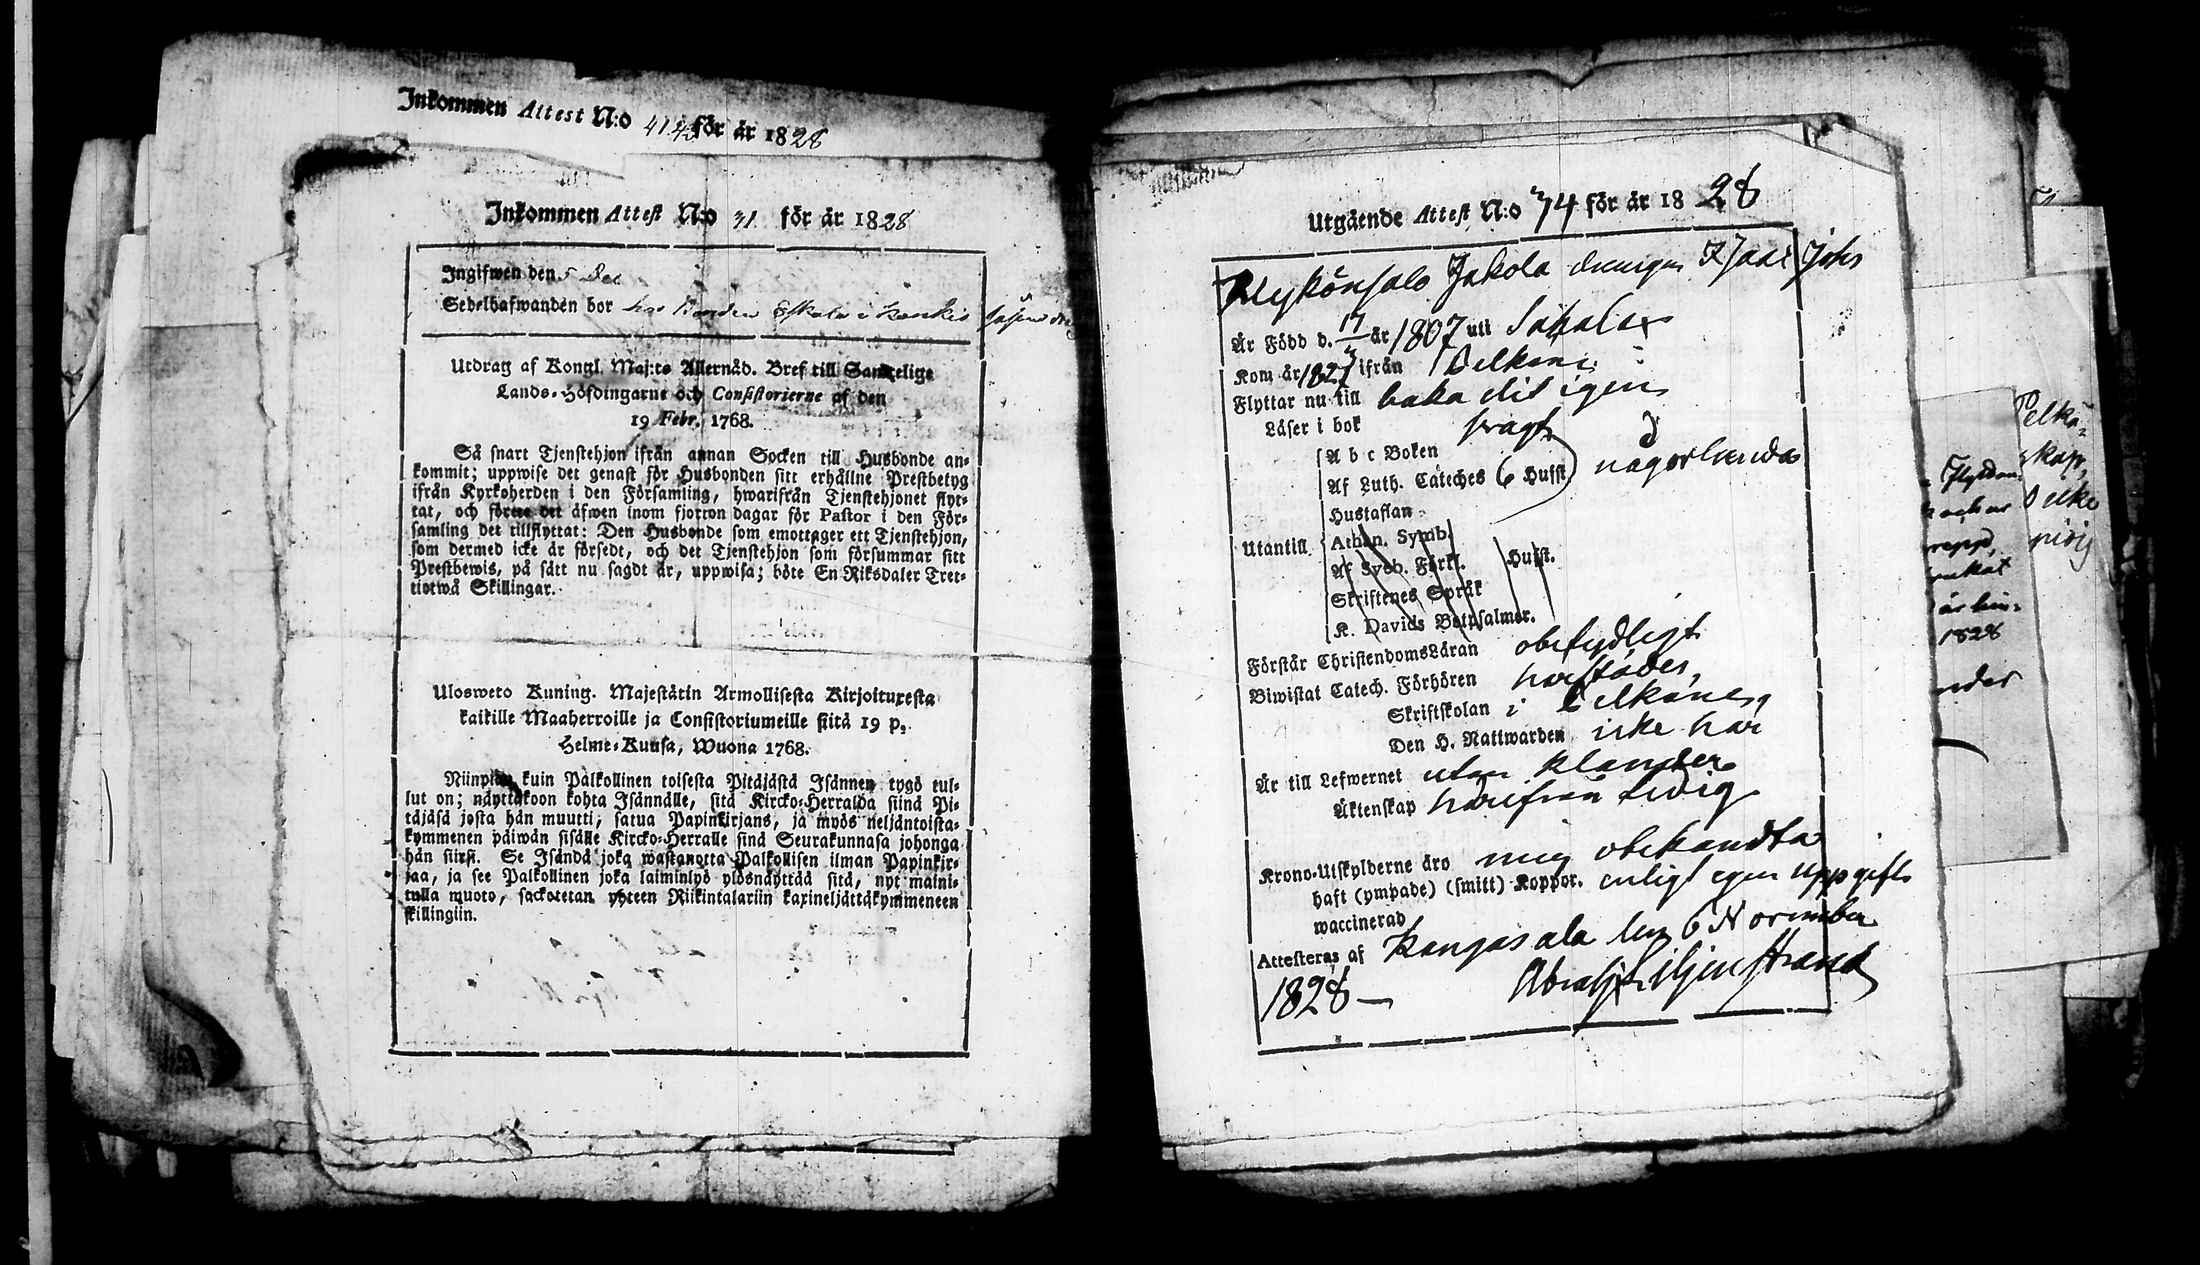 Inkommen Attest N:o 41 42 för år 1828
Inkommen Attest N:o 41 för år 1828
Ingifwen den 5 Dec
Sedelhafwanden bor hos Bonden Eskola i
Utdrag af Kongl. Maj:ts Allernåd. Bref till Samtelige
Lands-Höfdingarne och Consistorierne af den
19 Febr. 1768.
Så snart Tjenstehjon ifrån annan Socken till Husbonde an-
kommit; uppwise det genast för Husbonden sitt erhållne Prestbetyg
ifrån Kyrkoherden i den Församling, hwarifrån Tjenstehjonet flyt-
tat, och förete det äfwen inom fjorton dagar för Pastor i den För-
samling det tillflyttat: Den Husbonde som emottager ett Tjenstehjon,
som dermed icke är försedt, och det Tjenstehjon som försummar sitt
Prestbewis, på sätt nu sagdt är, uppwisa; böte En Riksdaler Tret-
tiotwå Skillingar.
Ulosweto Kuning. Majestätin Armollisesta Kirjoituxesta
kaikille Maaherroille ja Consistoriumeille siitä 19 p.
Helme-Kuusa, Wuona 1768.
Niinpian kuin Palkollinen toisesta Pitäjästä Isännen tygö tul-
lut on; näyttäkoon kohta Isännälle, sitä Kircko-Herralda siinä Pi-
täjäsä josta hän muutti, saatua Papinkirjans, ja myös neljäntoista-
kymmenen päiwän sisälle Kircko-Herralle siinä Seurakunnasa johonga
hän siirsi. Se Isändä joka wastanotta Palkollisen ilman Papinkir-
jaa, ja see Palkollinen joka laiminlyö ylösnäyttää sitä, nyt maini-
tulla muoto, sackotetan yhteen Riikintalariin kaxineljättäkymmeneen
skillingiin.
Utgående Attest N:o 74 för år 1828
Jakola drängen Isaac Johs
Är Född d. 17 år 1807 uti Sahalax
Kom år 1827 ifrån Pelkäne
Flyttar nu till baka dit igen
Läser i bok svagt
A b c Boken
Af Luth. Cateches 6 Hufst. någorlunda
Hustaflan
Utantill Athan. Symb.
Af Sveb. Förkl. Hufst.
Skriftenes Språk
K. Davids Botpsalmer.
Förstår ChristendomsLäran obetydligt
Biwistat Catech. Förhören härstädes,
Skriftskolan i Pelkäne,
Den H. Nattwarden icke här
Är till Lefwernet utan klander
Äktenskap härifrån ledig
Krono-Utskylderne äro mig obekandta
haft (ympade) (smitt) Koppor. enligt egen uppgift
waccinerad
Attesteras af Kangasala den 6 November
1828 Abrah. Liljenstrand
Pelkä-
1828